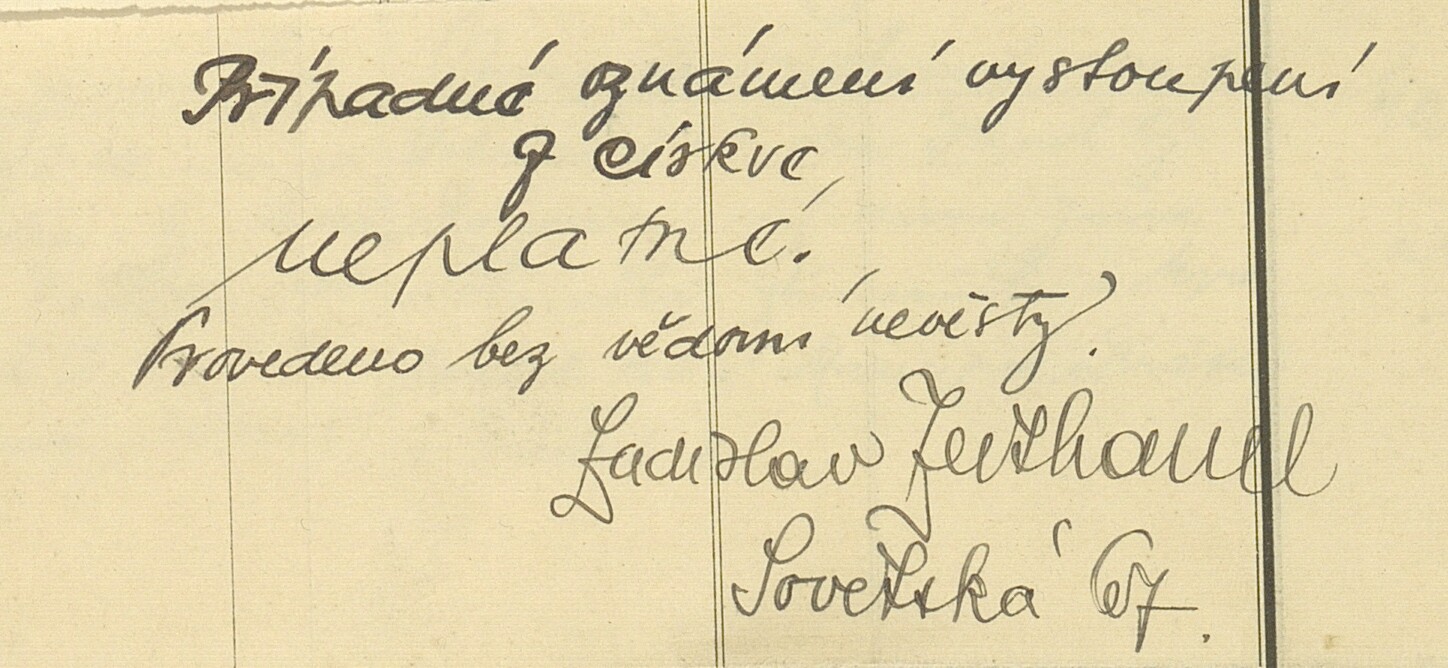 Případné oznámení vystoupení
z církve
neplatné.
Provedeno bez vědomí nevěsty.
Ladislav
Sovětská 67.